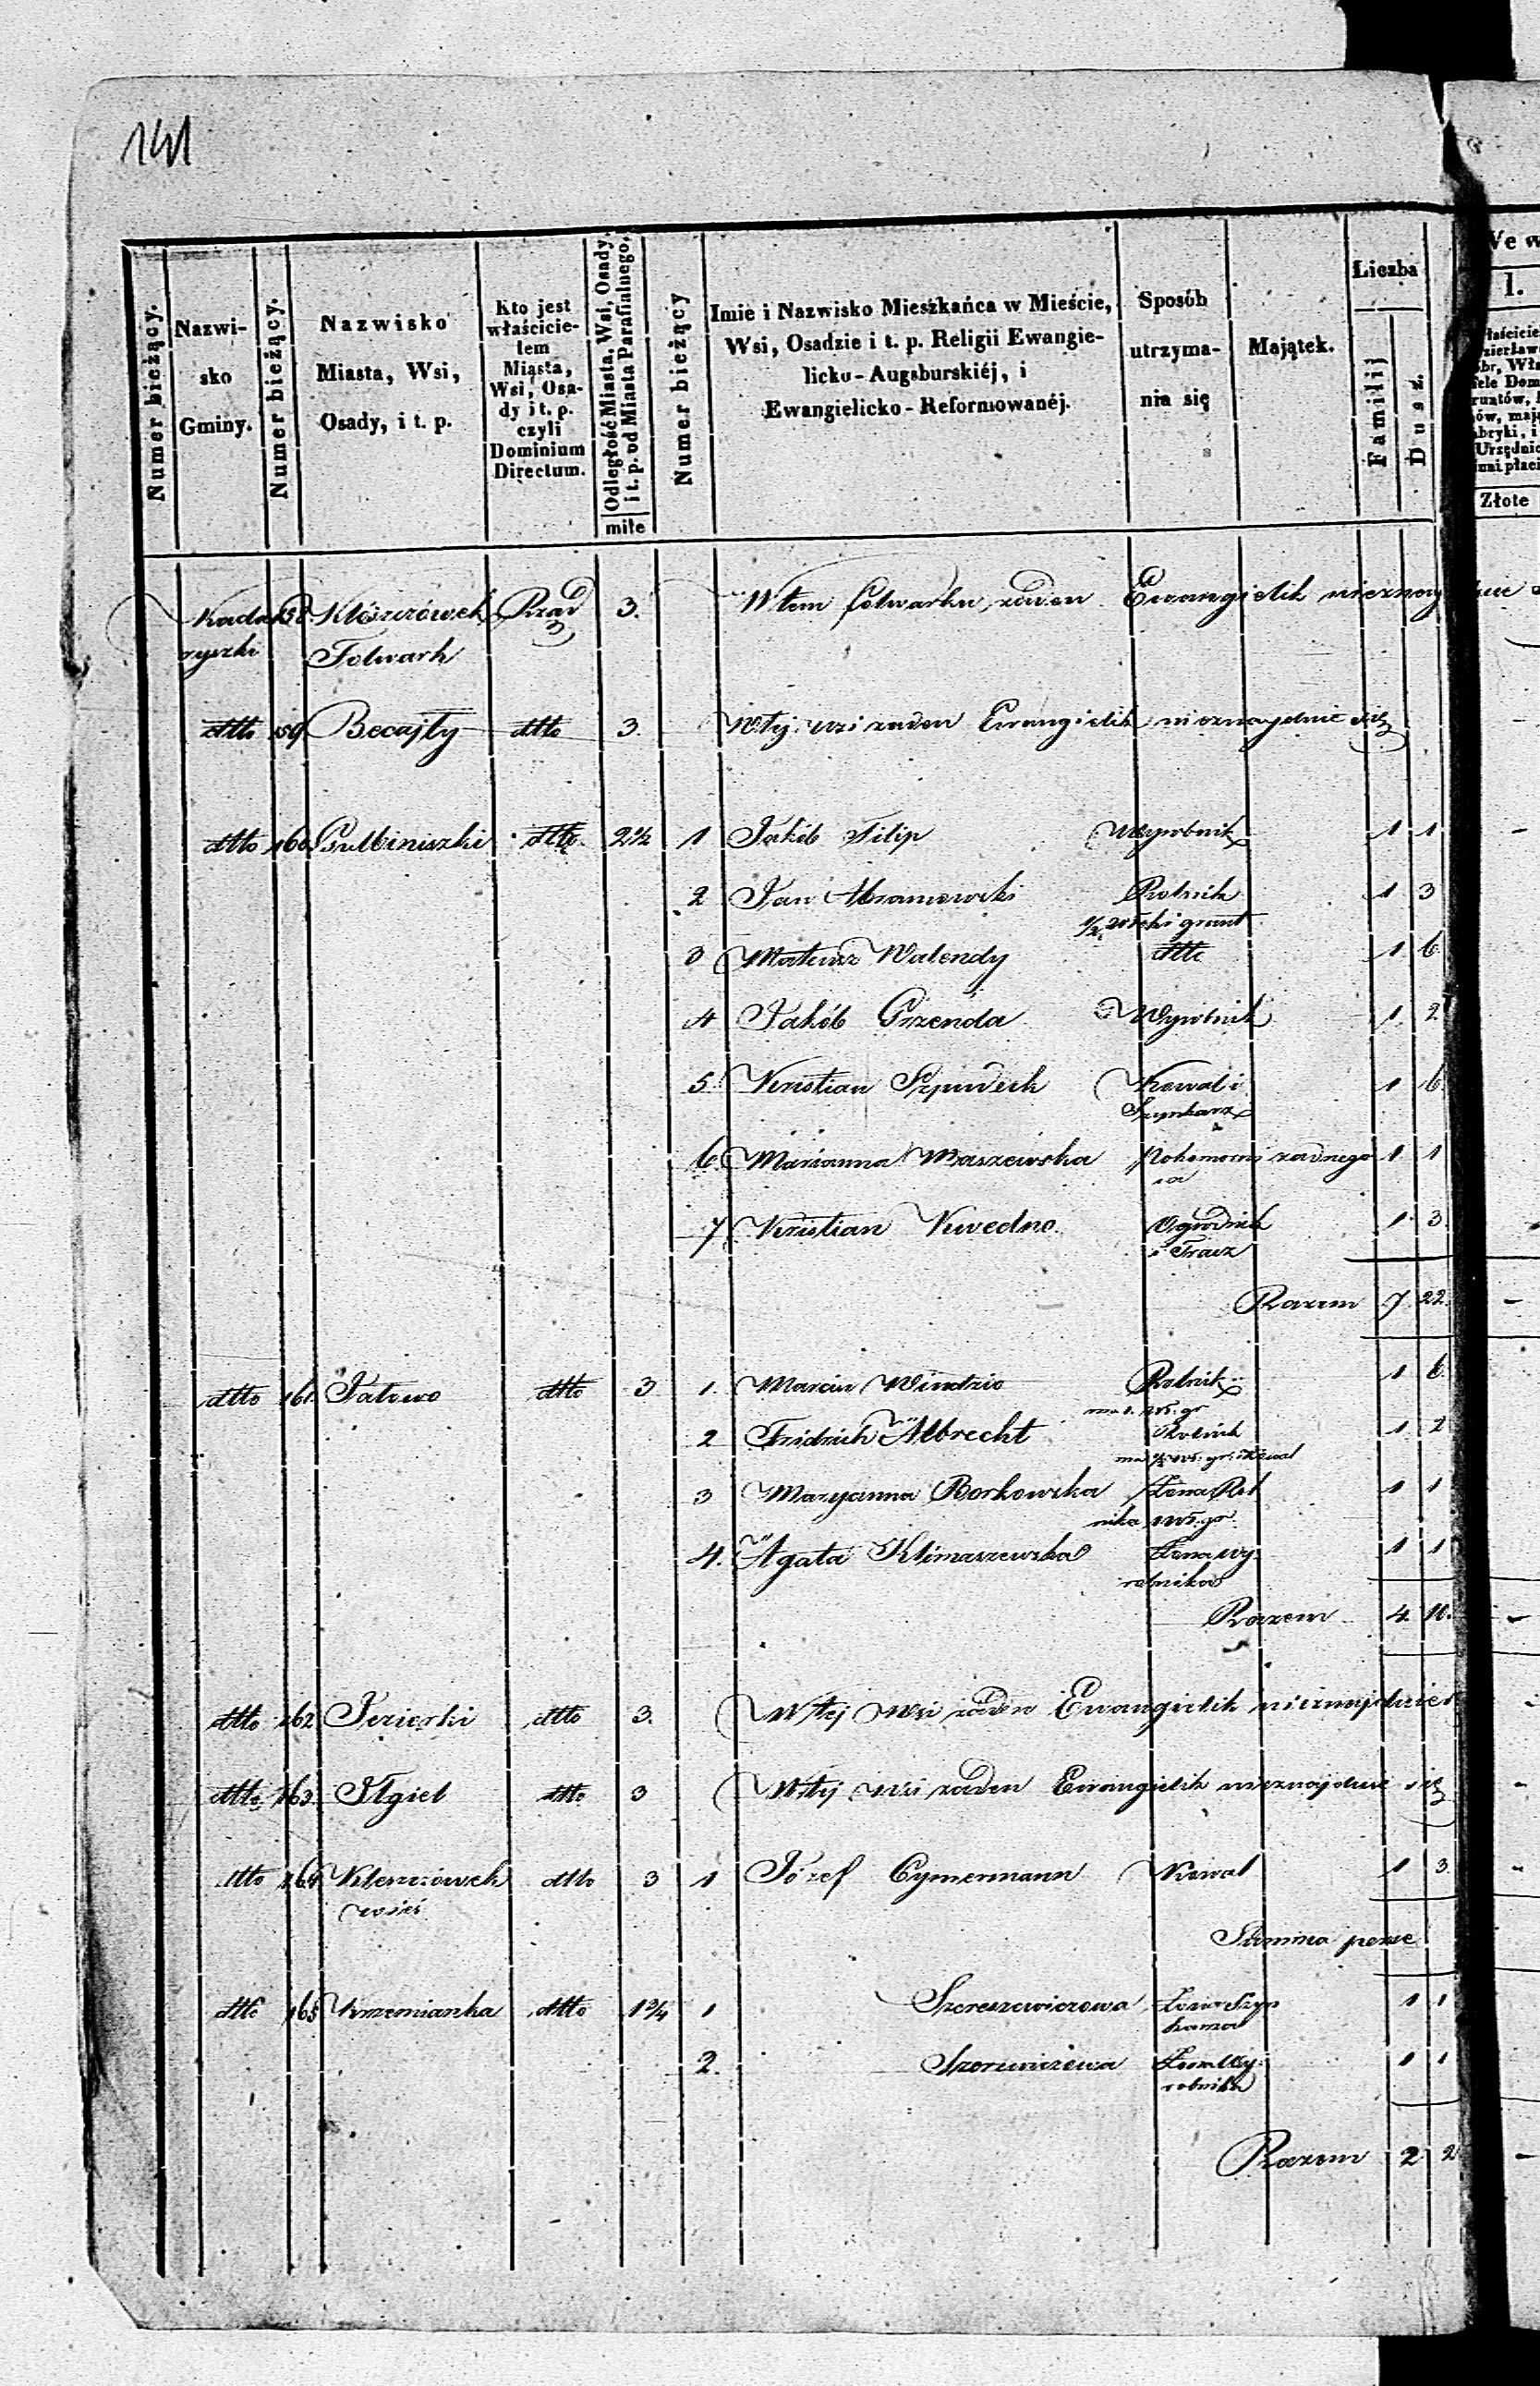 141
Numer bieżący.
Nazwi-
sko
Gminy.
Numer bieżący.
Nazwisko
Miasta, Wsi,
Osady, i t. p.
Kto jest
właścicie-
lem
Miasta,
Wsi, Osa-
dy i t. p.
czyli
Dominium
Directum.
Odległość Miasta, Wsi, Osady,
i t. p. od Miasta Parafialnego,
mile
Numer bieżący
Imie i Nazwisko Mieszkańca w Mieście,
Wsi, Osadzie i t. p. Religii Ewangie-
licko-Augsburskiéj, i
Ewangielicko-Reformowanéj.
Sposób
utrzyma-
nia się
Majątek.
Liczba
Familij
Dusz.
1.
Złote
Kada 158 Kleszczówek Rząd 3. W tem folwarku żaden Ewangielik nieznay
ryszki Folwark
dtto 159 Becajły dtto 3. W tej wsi żaden Ewangielik nieznayduie się
dtto 160 Gulbiniszki dtto 2½ 1 Jakób Filip Wyrobnik 1 1
2 Jan Abramowski Rolnik 1 3
½ włóki grunt
3 Mateusz Walendy dtto 1 6
4 Jakób Grzenda Wyrobnik 1 2
5 Kristian Szpudeik Kowal i 1 6
Szynkarz
6 Marianna Maszewska żadnego 1 1
7 Kristian Kwedno Ogrodnik 1 3
i Tracz
Razem 7 22
dtto 161 Jałowo dtto 3 1. Marcin Windzio Rolnik 1 6
ma 1. wł. gr
2 Fridrich Albrecht Rolnik 1 2
ma ½ wł. gr. i Kowal
3 Maryanna Borkowska żona Rol 1 1
nika wł. gr.
4. Agata Klimaszewska żona wy 1 1
robnika
Razem 4. 10.
dtto 162 Jezierki dtto 3. W tej wsi żaden Ewangielik nieznajduie
dtto 163 Ilgiel dtto 3 W tej wsi żaden Ewangielik nieznajduie się
dtto 164 Kleszczówek dtto 3 1 Józef Cymermann Kowal 1 3
wieś
Summa perse
dtto 165 Krzemianka dtto 1¾ 1 Szereszewiczowa żona Szyn 1 1
karza
2. żona Wy 1 1
robnika
Razem 2 2